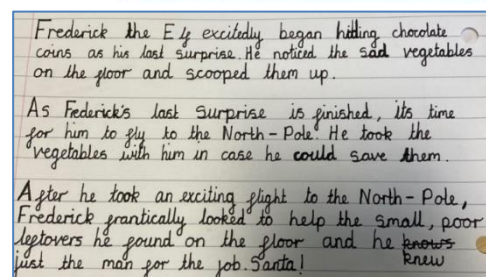 Frederick the Elf excitedly began hiding chocolate
coins as his last surprise. He noticed the sad vegetables
on the floor and scooped them up.
As Frederick's last surprise is finished, its time
for him to fly to the North-Pole. He took the
vegetables with him in case he could save them.
After he took an exciting flight to the North-Pole,
Frederick frantically looked to help the small, poor
leftovers he found on the floor and he knows
just the man for the job. Santa! knew